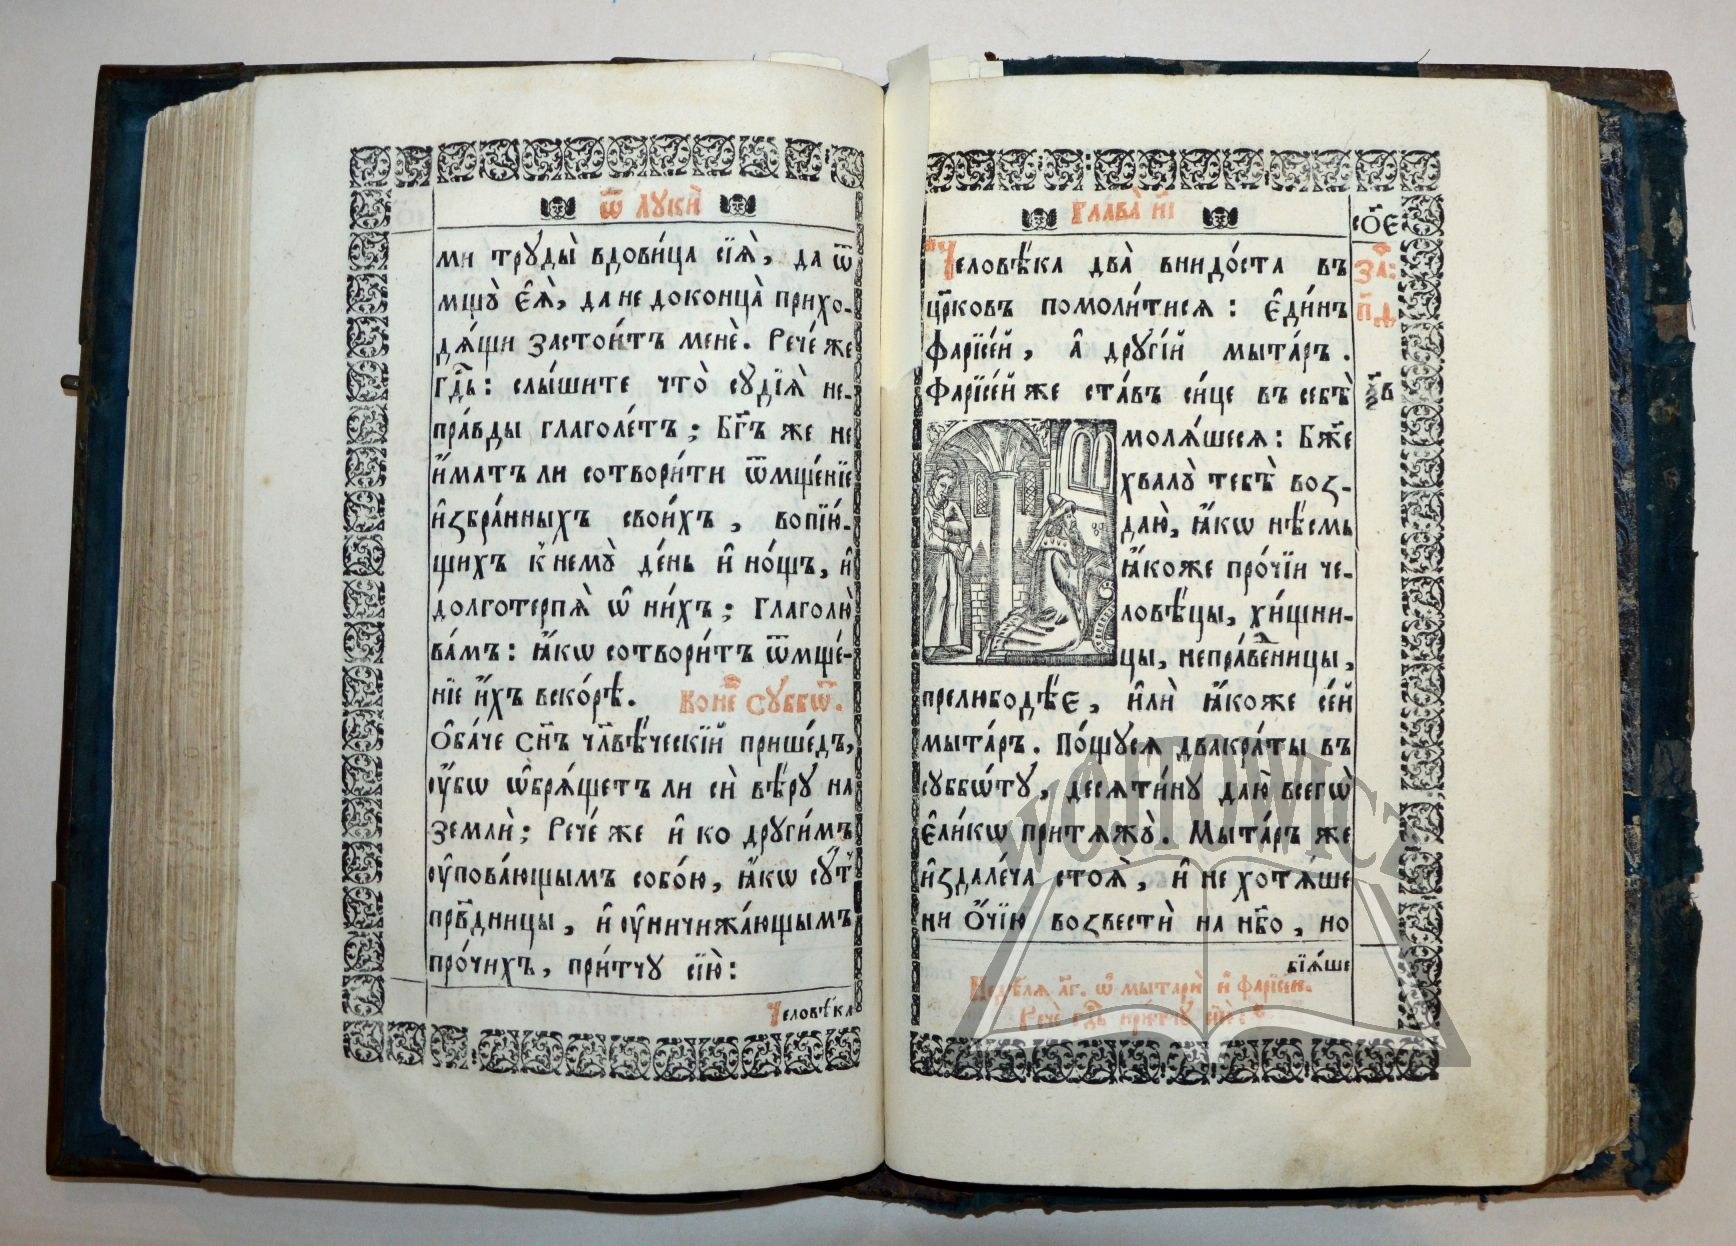 Ѿ ЛУКЍ
ми труды̀ вдови́ца сїѧ̀, да ѿ
мщꙋ̀ є҆ѧ̀, да не доконца̀ прихо-
дѧ́щи застои́тъ менѐ. Рече́ же
гд҇ь: слы́шите что̀ сꙋдїѧ̀ не-
пра́вды глаголе́тъ; Бг҃ъ же не
и҆́мать ли сотвори́ти ѿмще́нїе
и҆збра́нныхъ свои́хъ, вопїю́-
щихъ к̾ немꙋ̀ де́нь и҆ но́щь, и҆
долготерпѧ̀ ѡ҆ ни́хъ; Глаголю̀
ва́мъ: ꙗ҆́кѡ сотвори́тъ ѿмще́-
нїе и҆́хъ вско́рѣ. Коне҇ Сꙋббѡ҇т.
Ѻ҆ба́че Сн҃ъ чл҃вѣ́ческїй прише́дъ,
ᲂу҆́бѡ ѡ҆брѧ́щетъ ли сѝ вѣ́рꙋ на
землѝ; Рече́ же и҆ ко дрꙋги́мъ
ᲂу҆пова́ющымъ собо́ю, ꙗ҆́кѡ сꙋ́т
прв҇дницы, и҆ ᲂу҆ничижа́ющымъ
про́чихъ, при́тчꙋ сїю̀:
Человѣ́ка
ГЛАВА̀ И҃І
СО҃Є
Человѣ́ка два̀ внидо́ста въ
цр҃ковъ помоли́тисѧ: Є҆ди́нъ
фарїсе́й, а҆ дрꙋгі́й мыта́рь.
Фарїсе́й же ста́въ си́це въ себѣ̀
молѧ́шесѧ: Бж҃е
хвалꙋ̀ тебѣ̀ воз-
даю̀, ꙗ҆́кѡ нѣ́смь
ꙗ҆́коже про́чїи че-
ловѣ́цы, хи́щни-
цы, непра́веⷣницы,
прелюбодѣ́є, и҆лѝ ꙗ҆́коже се́й
мыта́рь. По́щꙋсѧ двакра́ты въ
сꙋббѡ́тꙋ, десѧти́нꙋ даю̀ всегѡ̀
є҆ли́кѡ притѧжꙋ̀. Мыта́рь же
и҆здале́ча стоѧ̀, и҆ не хотѧ́ше
ни Ѻ҆́чїю возвестѝ на нб҃о, но
За҇:
п҃д
бїѧ́ше
Недѣ́лѧ л҃г. ѡ҆ мытарѝ и҆ фарїсе́и.
Речѐ гд҇ь при́тчꙋ сїю̀:
WÓJTOWICZ